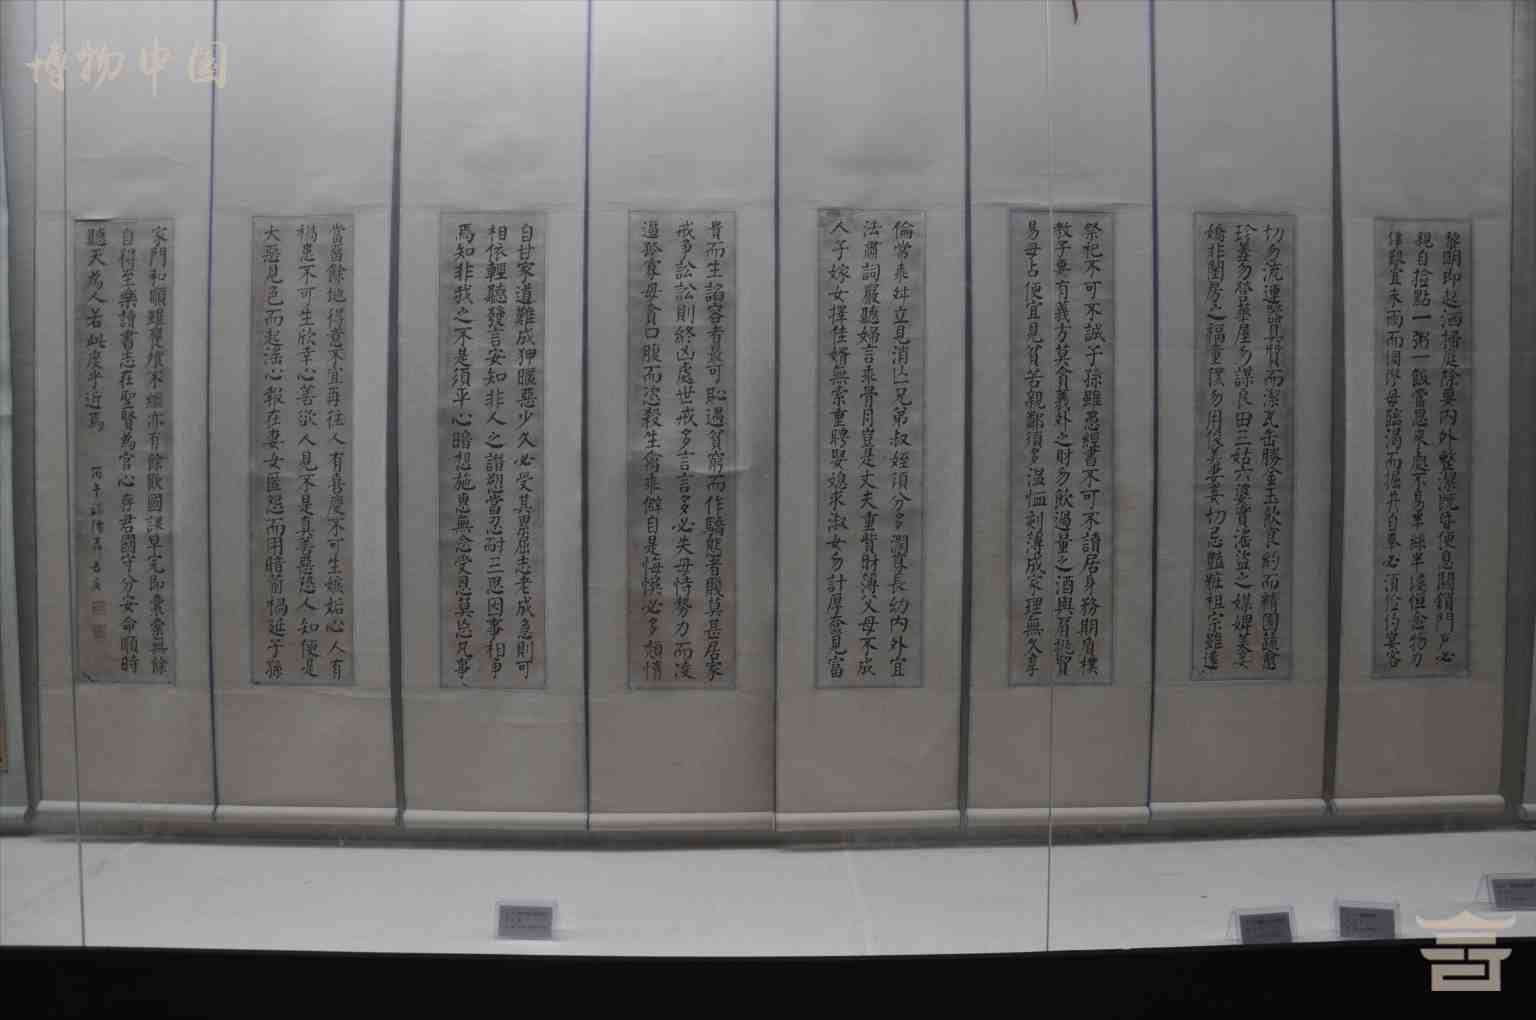 黎明即起洒掃庭除要內外整潔既昏便息關鎖門戶必
親自捡點一粥一飯當思來處不易半絲半縷恒念物力
維艱宜未雨而綢繆毋臨渴而掘井自奉必須儉約宴客
切勿流連器具質而潔瓦缶勝金玉飲食約而精園蔬愈
珍羞勿營華屋勿謀良田三姑六婆實淫盜之媒婢美妾
嬌非閨房之福童僕勿用俊美妻妾切忌豔粧祖宗雖遠
祭祀不可不誠子孫雖愚經書不可不讀居身務期質樸
教子要有義方莫貪義外之財勿飲過量之酒與肩挑貿
易毋占便宜見貧苦親鄰須多溫恤刻薄成家理無久享
倫常乖舛立見消亡兄弟叔姪須分多潤寡長幼內外宜
法肅詞嚴聽婦言乖骨肉豈是丈夫重貲財薄父母不成
人子嫁女擇佳婿無索重聘娶媳求淑女勿計厚奩見富
貴而生諂容者最可恥遇貧窮而作驕態者賤莫甚居家
戒多訟訟則終凶處世戒多言言多必失毋恃勢力而凌
逼孤寡毋貪口腹而恣殺生禽乖僻自是悔悞必多頹惰
自甘家道難成狎暱惡少久必受其累屈志老成急則可
相依輕聽發言安知非人之譖愬當忍耐三思因事相爭
焉知非我之不是須平心暗想施惠無念受恩莫忘凡事
當留餘地得意不宜再往人有喜慶不可生嫉妬心人有
禍患不可生欣幸心善欲人見不是真善惡恐人知便是
大惡見色而起淫心報在妻女匿怨而用暗箭禍延子孫
家門和順雖饔飧不繼亦有餘歡國課早完即囊橐無餘
自得至樂讀書志在聖賢為官心存君國守分安命順時
聽天為人若此庶乎近焉
丙午
博物中国